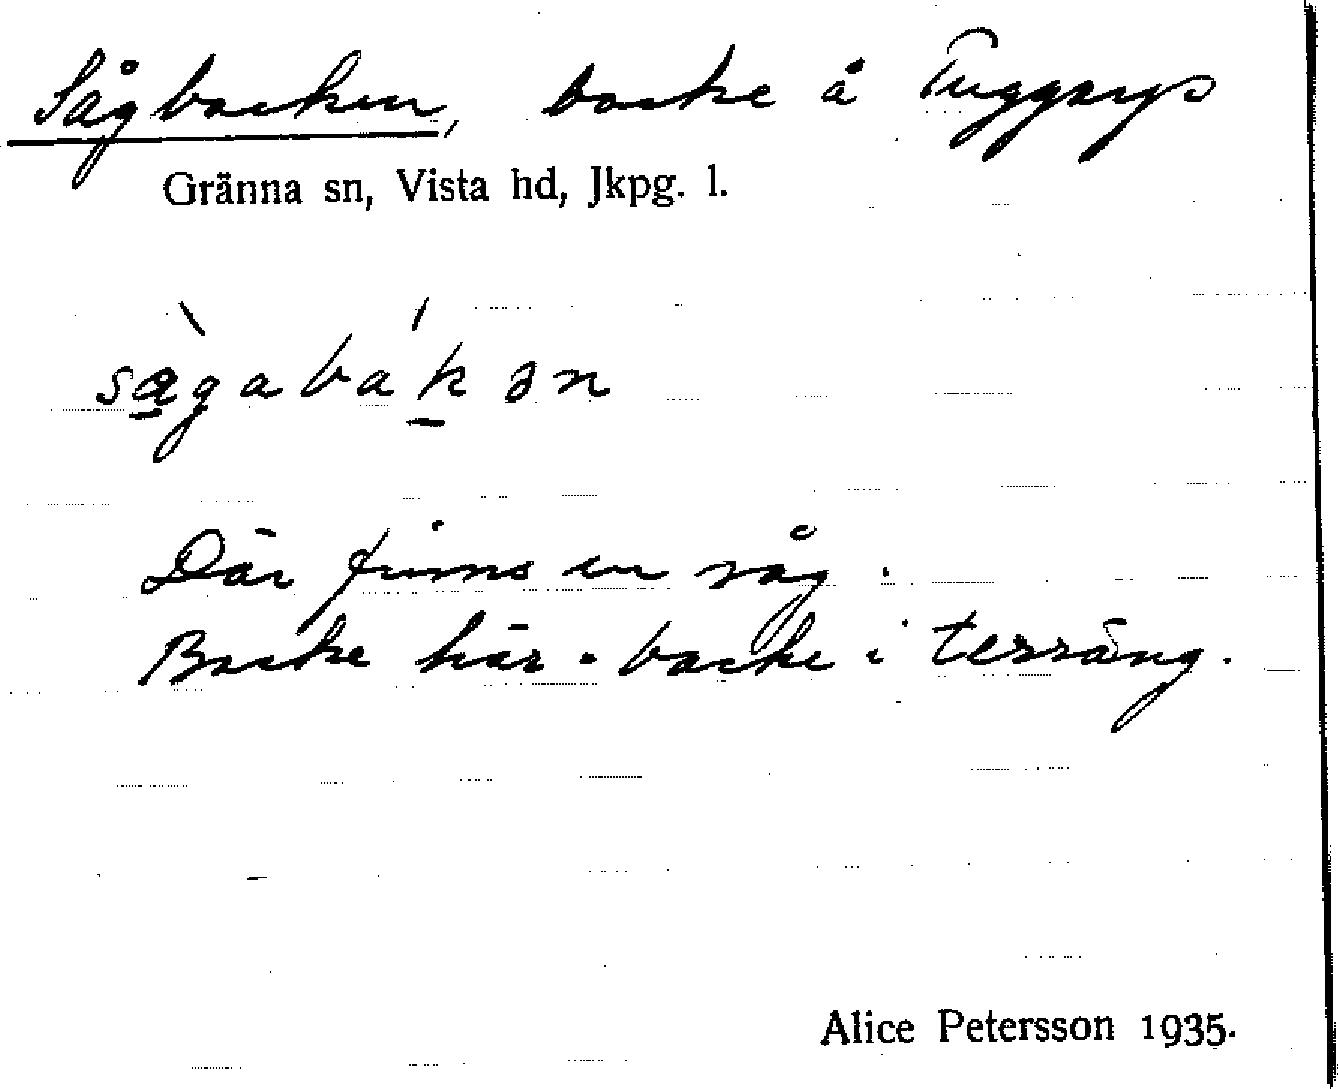 Sågbacken, backe å Tuggarps
Gränna sn, Vista hd, Jkpg. l.
sàgabák ən
Där finns en såg.
Backe här = backe i terräng.
Alice Petersson 1935.